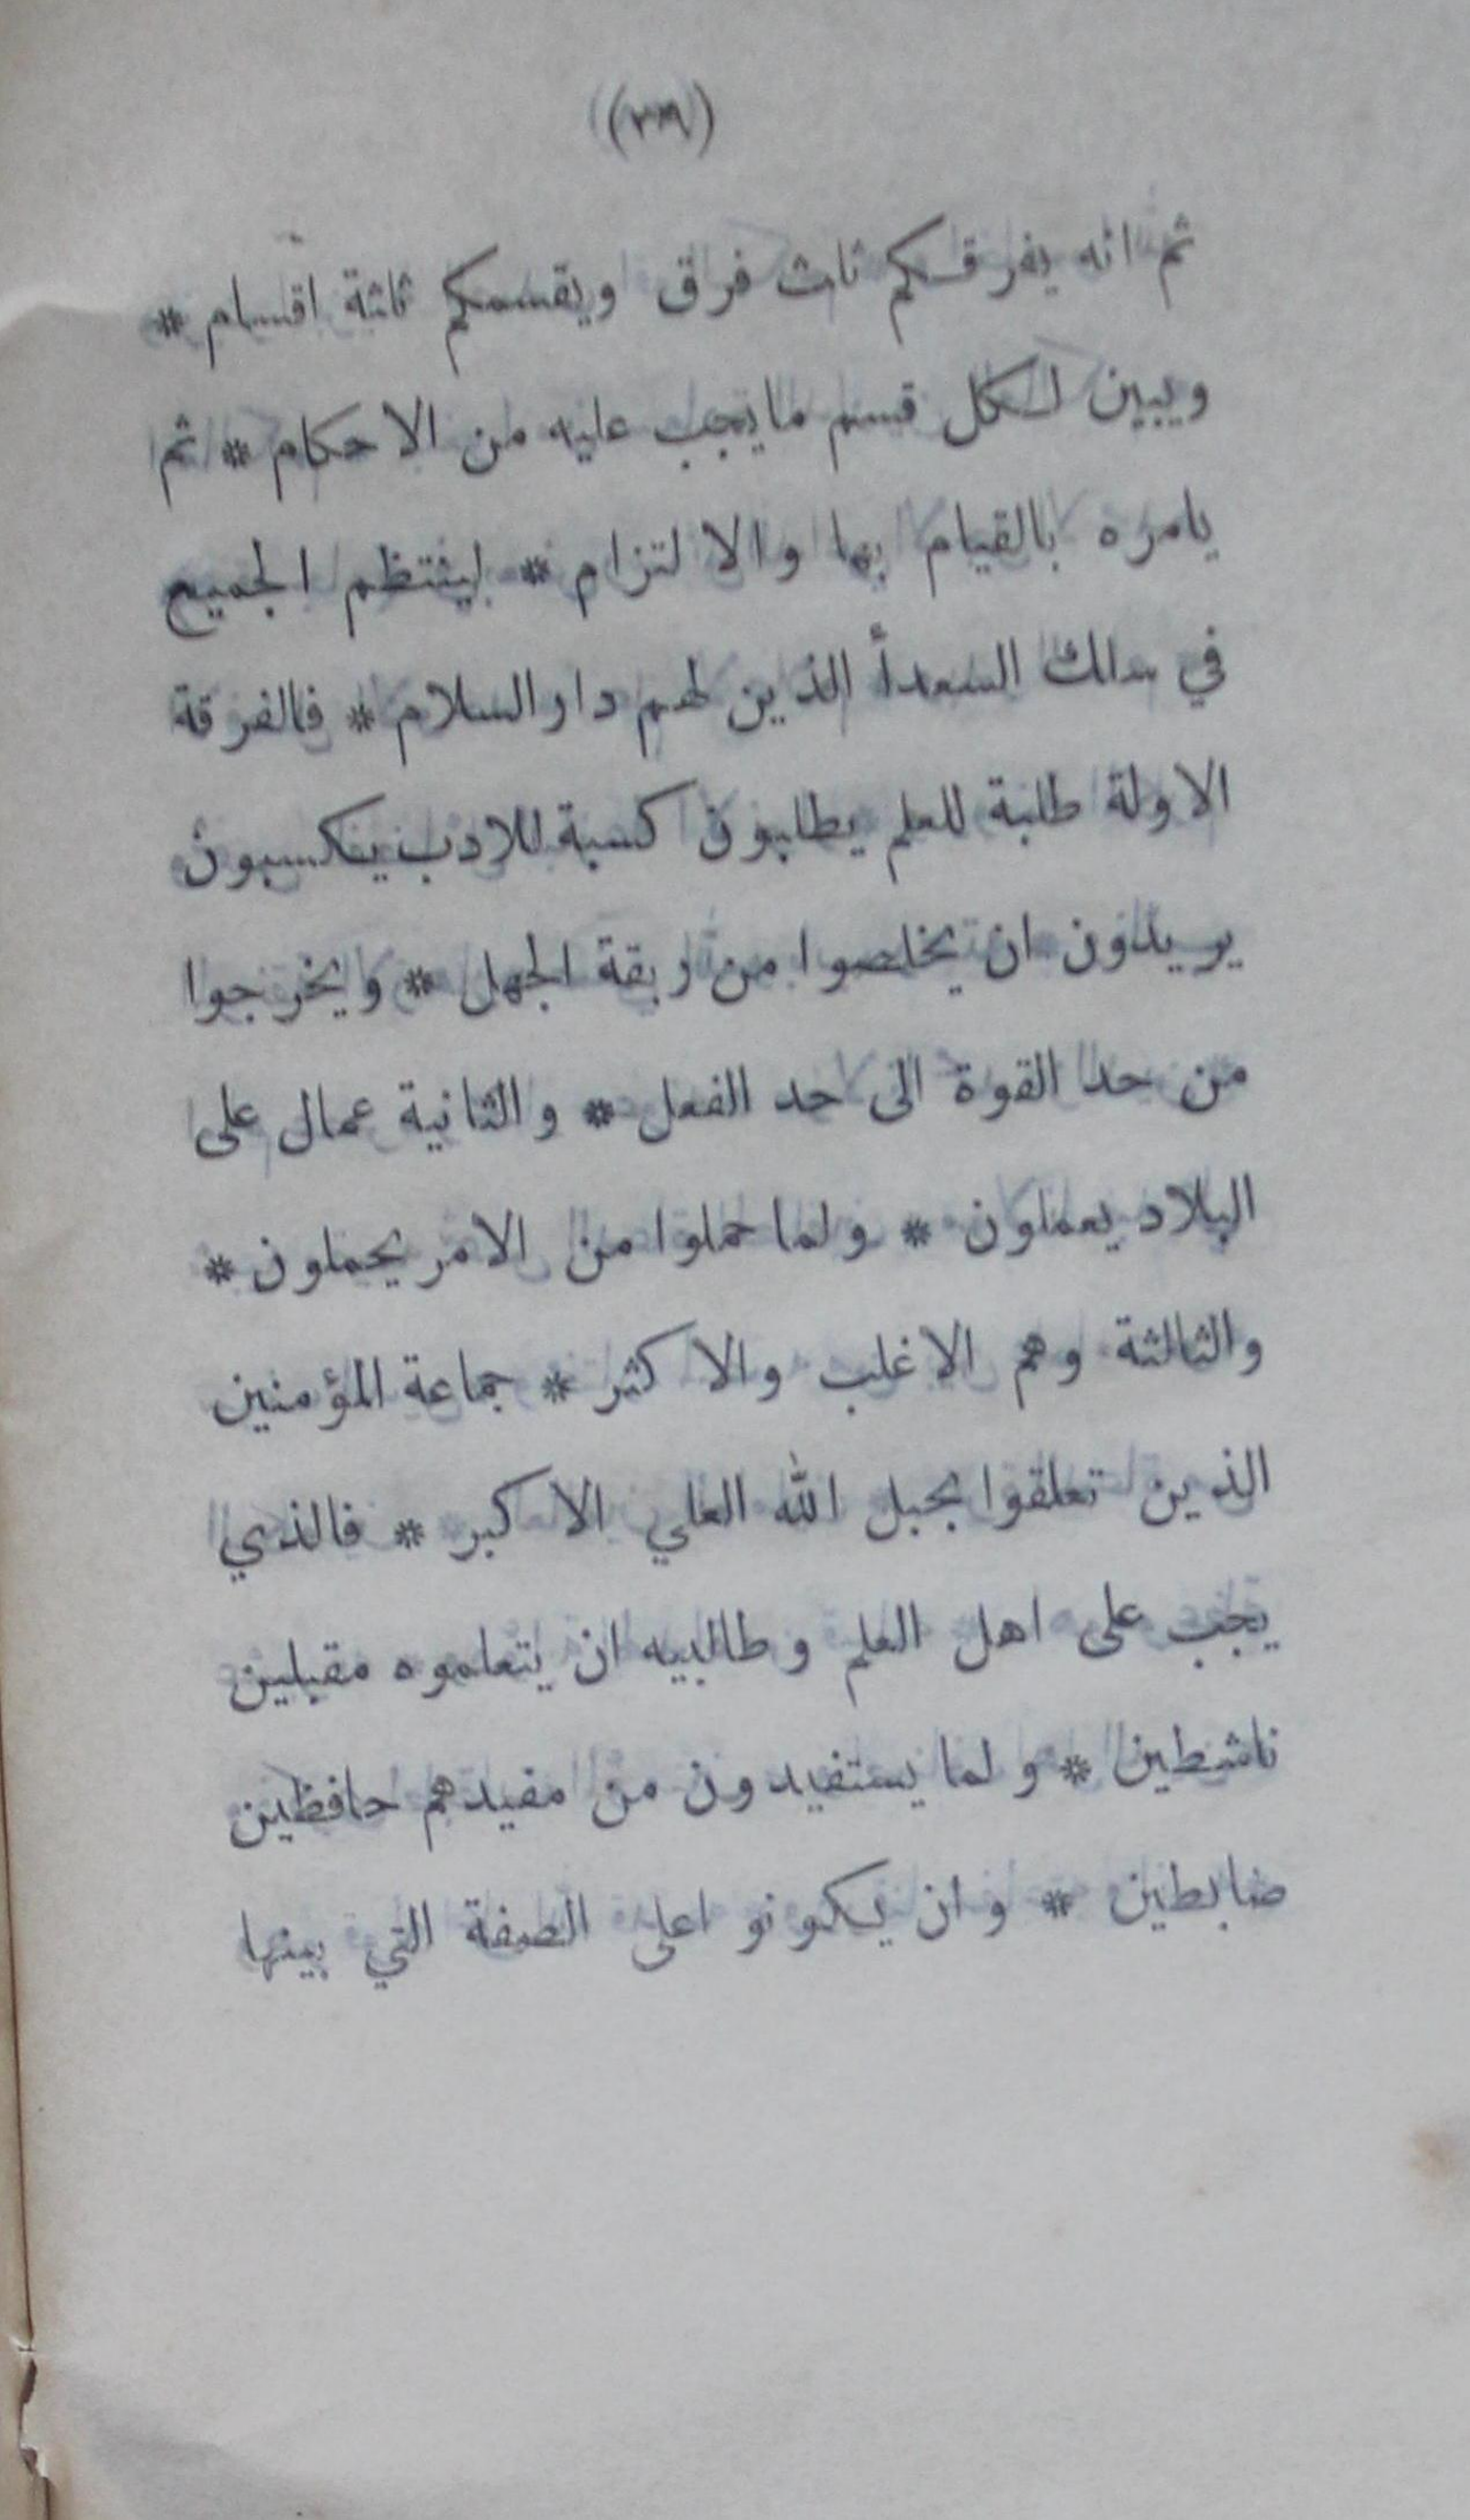 ثم انه يفرقكم ثلث فرق ويقسمكم ثلثة اقسام *
ويبين لكل قسم مايجب عليه من الاحكام * ثم
يامره بالقيام بها والالتزام * لينتظم الجميع
في سلك السعدأ الذين لهم دار السلام * فالفرقة
الاولة طلبة للعلم يطلبون كسبة للادب يتكسبون
يريدون ان يخلصوا من ربقة الجهل * ويخرجوا
من حد القوة الى حد الفعل * والثانية عمال على
البلاد يعملون * ولما حملوا من الامر يحملون *
والثالثة وهم الاغلب والاكثر * جماعة المؤمنين
الذين تعلقوا بحبل الله العلي الاكبر * فالذي
يجب على اهل العلم وطالبيه ان يتعلموه مقبلين
ناشطين * ولما يستفيدون من مفيدهم حافظين
ضابطين * وان يكونو اعلى الصفة التي بينها